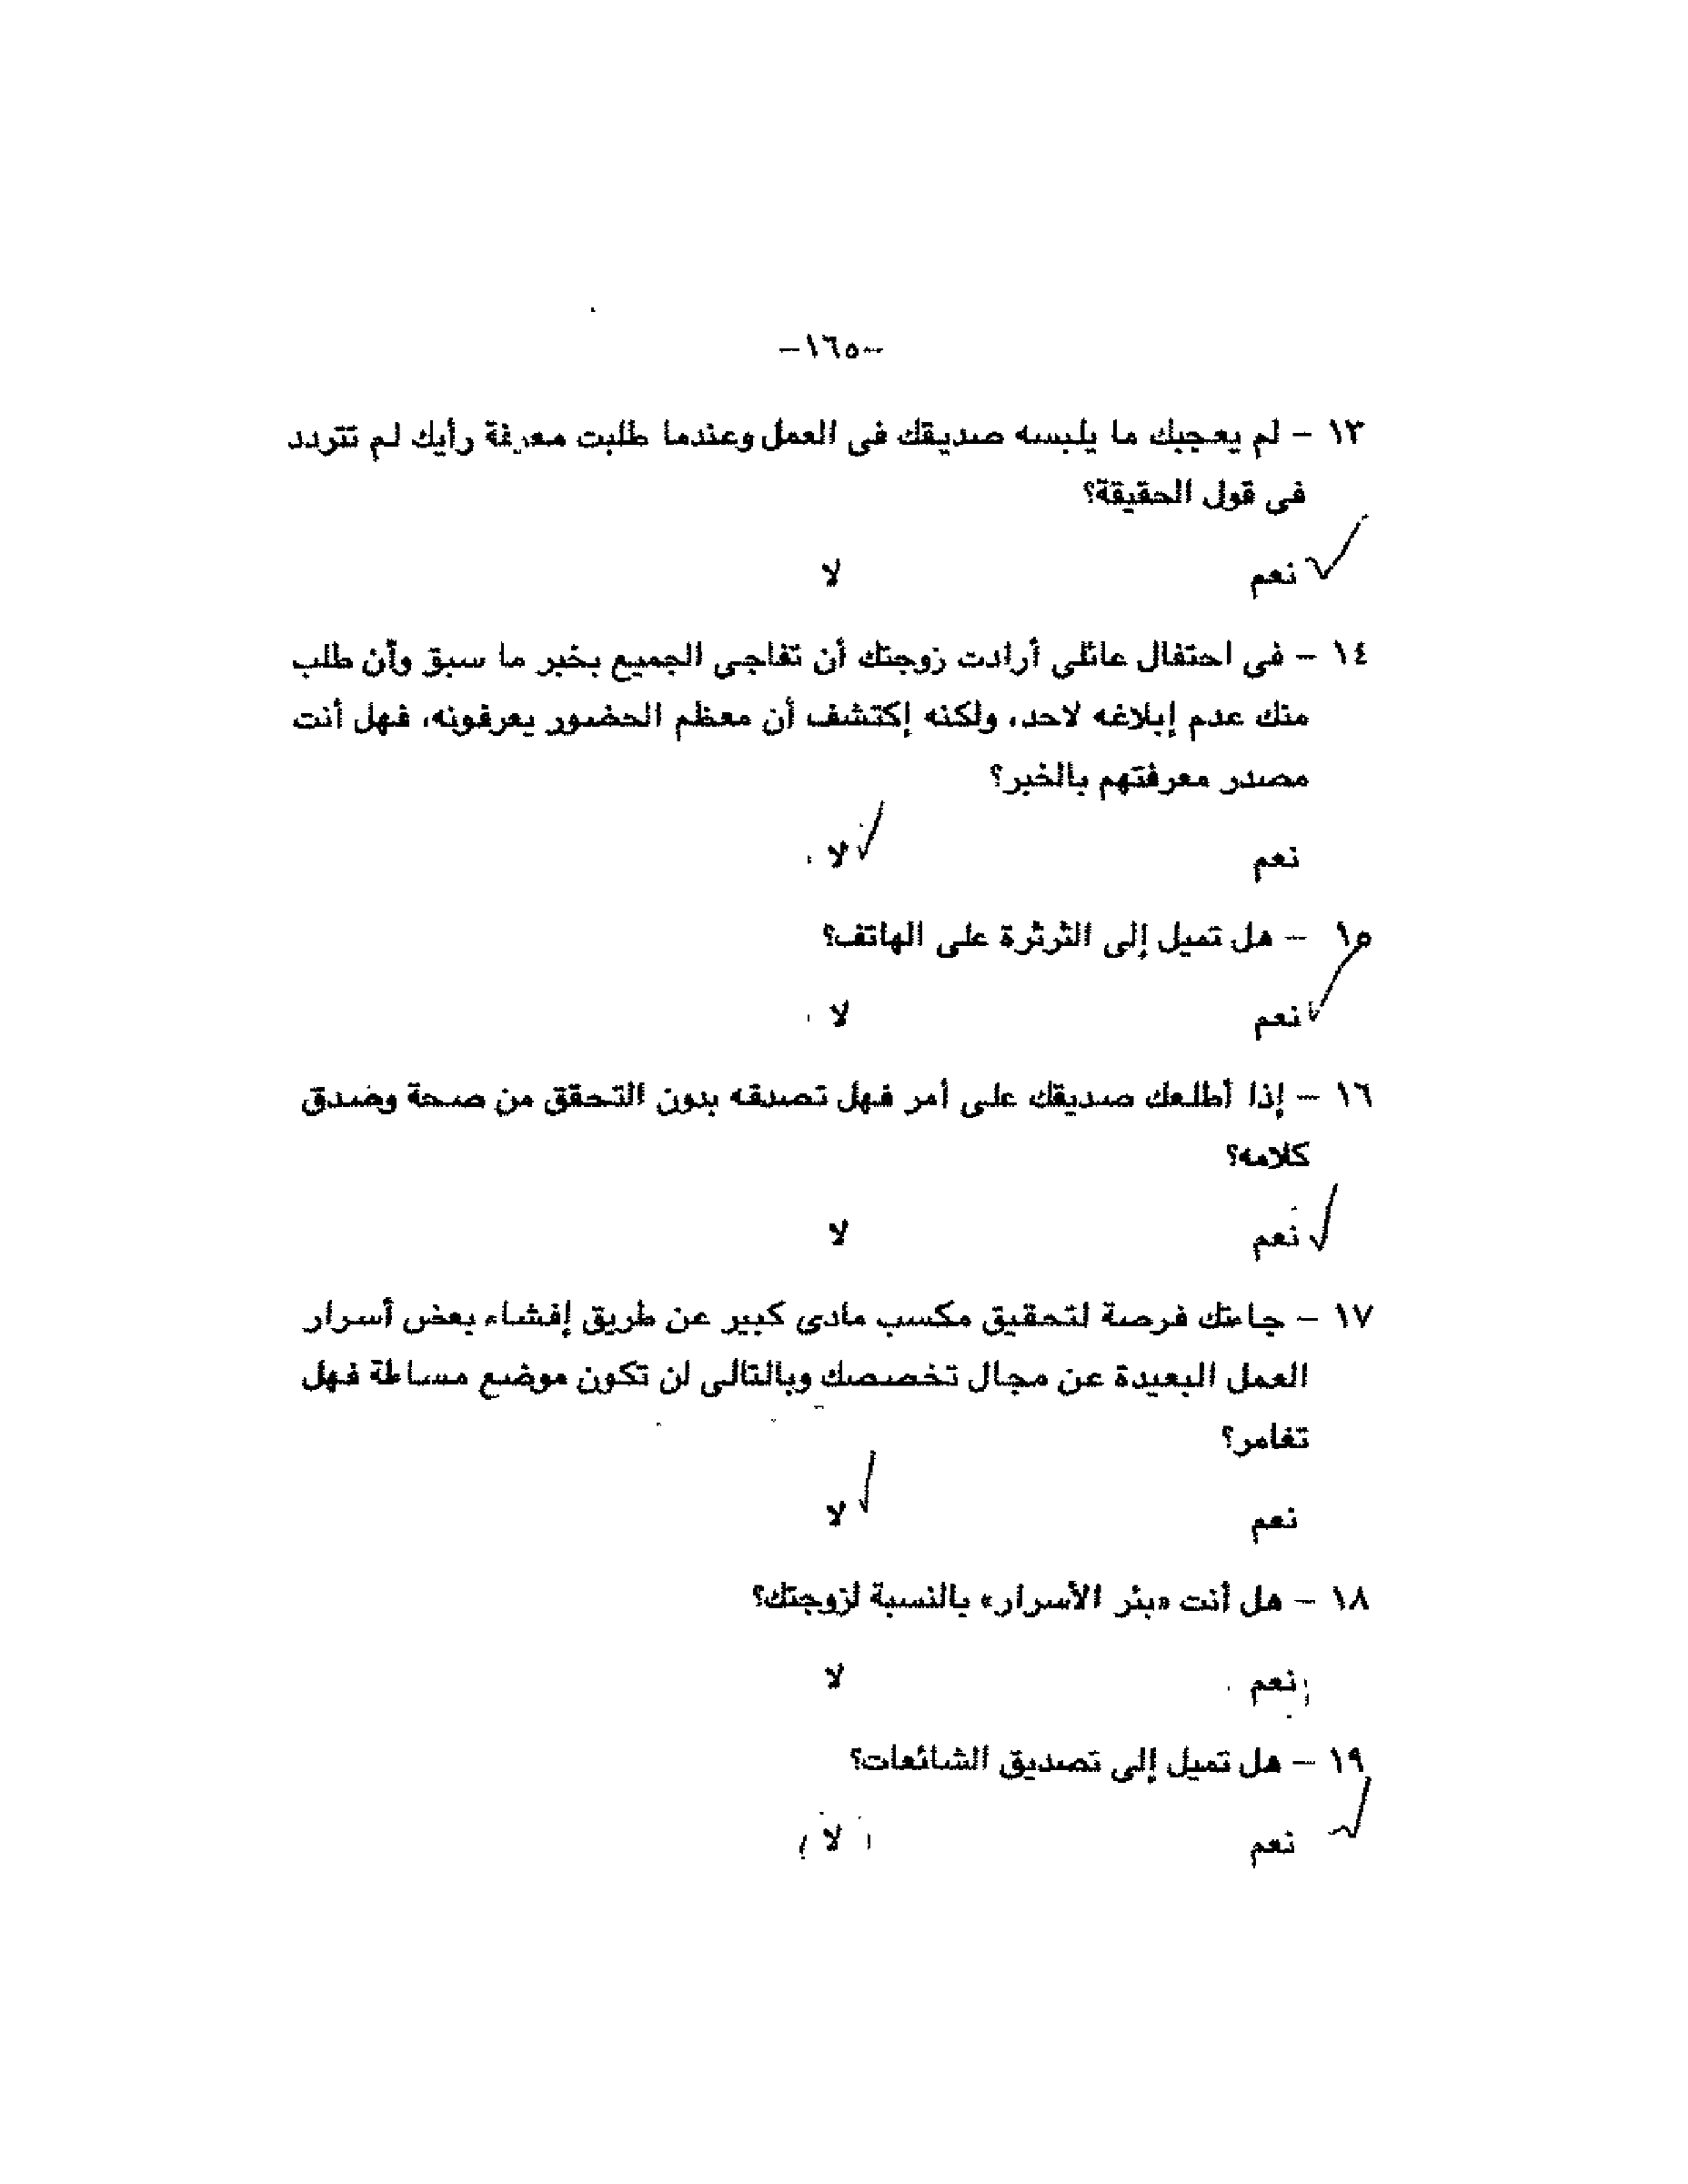 -١٦٥-
١٣ - لم يعجبك ما يلبسه صديقك فى العمل وعندما طلبت معرفة رأيك لم تتردد
فى قول الحقيقة؟
نعم لا
١٤ - فى احتفال عائلى أرادت زوجتك أن تفاجى الجميع بخبر ما سبق وأن طلب
منك عدم إبلاغه لاحد، ولكنه إكتشف أن معظم الحضور يعرفونه، فهل أنت
مصدر معرفتهم بالخبر؟
نعم لا
١٥ - هل تميل إلى الثرثرة على الهاتف؟
نعم لا
١٦ - إذا أطلعك صديقك على أمر فهل تصدقه بدون التحقق من صحة وصدق
كلامه؟
نعم لا
١٧ - جاءتك فرصة لتحقيق مكسب مادى كبير عن طريق إفشاء بعض أسرار
العمل البعيدة عن مجال تخصصك وبالتالى لن تكون موضع مساءلة فهل
تغامر؟
نعم لا
١٨ - هل أنت «بئر الأسرار» بالنسبة لزوجتك؟
نعم لا
١٩ - هل تميل إلى تصديق الشائعات؟
نعم لا